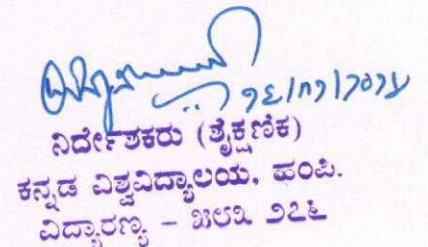 ನಿರ್ದೇಶಕರು (ಶೈಕ್ಷಣಿಕ)
ಕನ್ನಡ ವಿಶ್ವವಿದ್ಯಾಲಯ, ಹಂಪಿ.
ವಿದ್ಯಾರಣ್ಯ – ೫೮೩ ೨೭೬